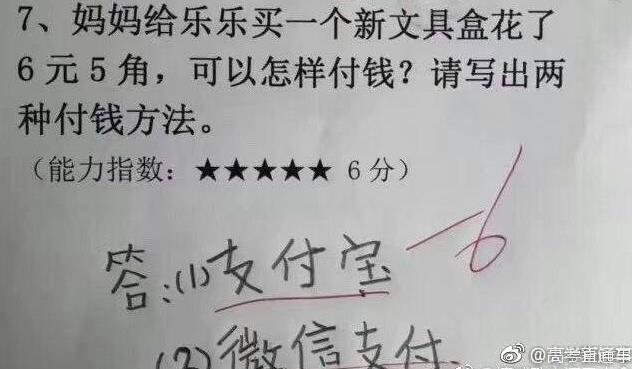 7、妈妈给乐乐买一个新文具盒花了
6元5角，可以怎样付钱？请写出两
种付钱方法。
（能力指数：★★★★★ 6分）
答:(1)支付宝 -6
(2)微信支付.
@高考直通车